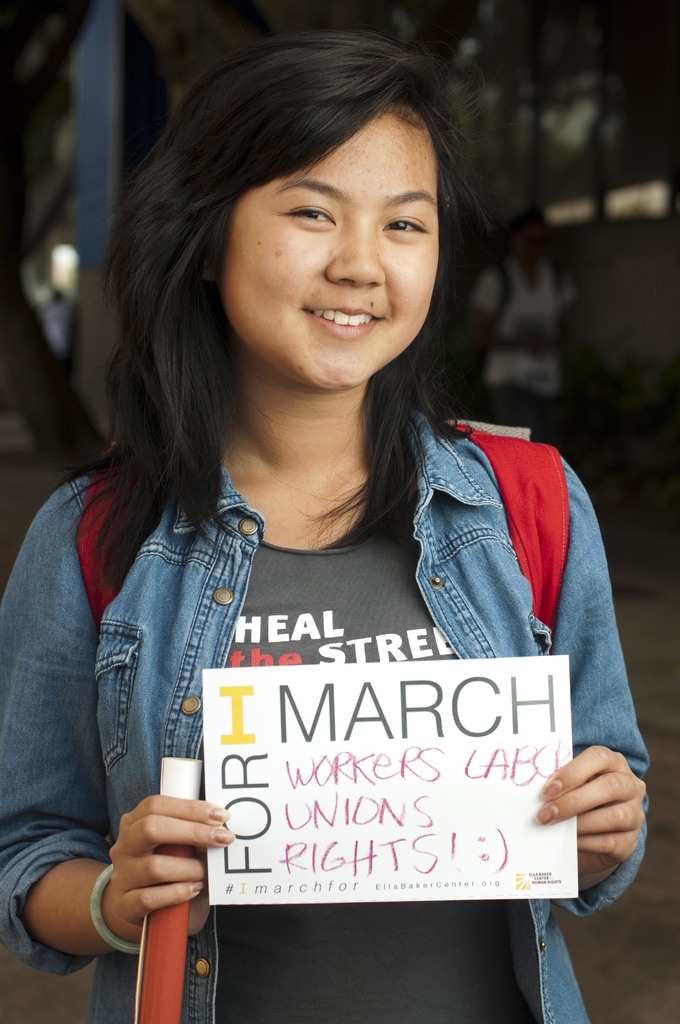 HEAL
the STREE
I MARCH
FOR
WORKERS LABOR
UNIONS
RIGHTS! :)
#Imarchfor EllaBakerCenter.org
ELLA BAKER
CENTER
for HUMAN RIGHTS